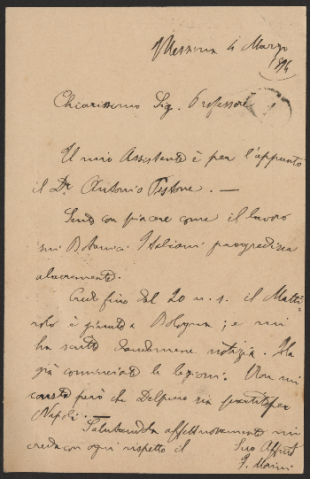 Messina 4 Marzo
1894
Chiarissimo Sig. Professore
Il mio Assistente è per l'appunto
il Dr. Antonio
Sento con piacere come il lavoro
sui Botanici Italiani progredisca
alacremente.
Credo fino dal 20 u. s. il Matti-
rolo è giunto a Bologna; e mi
ha scritto notizia. Ha
già cominciato le lezioni. Non mi
consta però che Delpino sia partito per
Napoli. —
Salutandola affettuosamente mi
creda con ogni rispetto il Suo